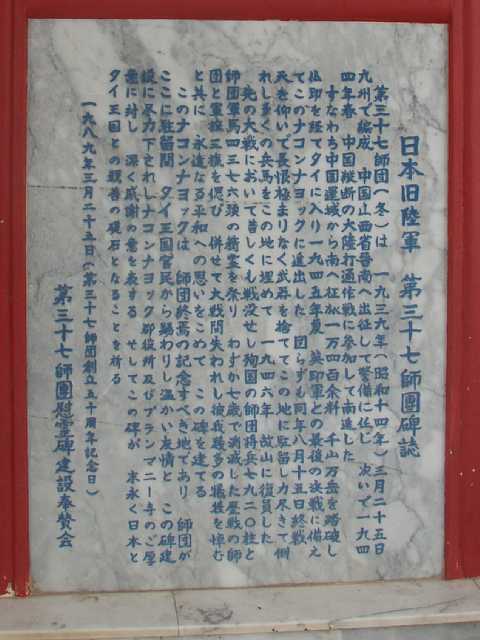 日本旧陸軍 第三十七師團碑誌
第三十七師団(冬)は 一九三九年(昭和十四年)三月二十五日
九州で編成 中国山西省晋南へ出征して警備に任じ 次いで一九四
四年春 中国縦断の大陸打通作戦に参加して南進した
すなわち中国運城から南へ征旅一万四百余粁 千山万岳を踏破し
仏印を経てタイに入り一九四五年夏 英印軍との最後の決戦に備え
てこのナコンナヨックに進出した 図らずも同年八月十五日終戦
天を仰いで長恨極まりなく武器を捨ててこの地に駐留し力尽きて倒
れし多くの兵馬をこの地に埋めて 一九四六年 故山に復員した
先の大戦において昔しくも戦没せし殉国の師団将兵七九二〇柱と
師団軍馬四三七六頭の精霊を祭り わずか七歳で消滅した歴戦の師
団と軍旗三旒を偲び 併せて大戦間失われし彼我幾多の犠牲を悼む
と共に 永遠なる平和への思いをこめて この碑を建てる
このナコンナヨックは 師団終焉の記念すべき地であり 師団が
ここに駐留間 タイ王国官民から賜わりし温かい友情と この碑建
設に尽力下されしナコンナヨック郡役所及びプランマニー寺のご厚
意に対し 深く感謝の意を表する そしてこの碑が 末永く日本と
タイ王国との親善の礎石となることを祈る
一九八九年三月二十五日(第三十七師団創立五十周年記念日)
第三十七師團慰霊碑建設奉賛会